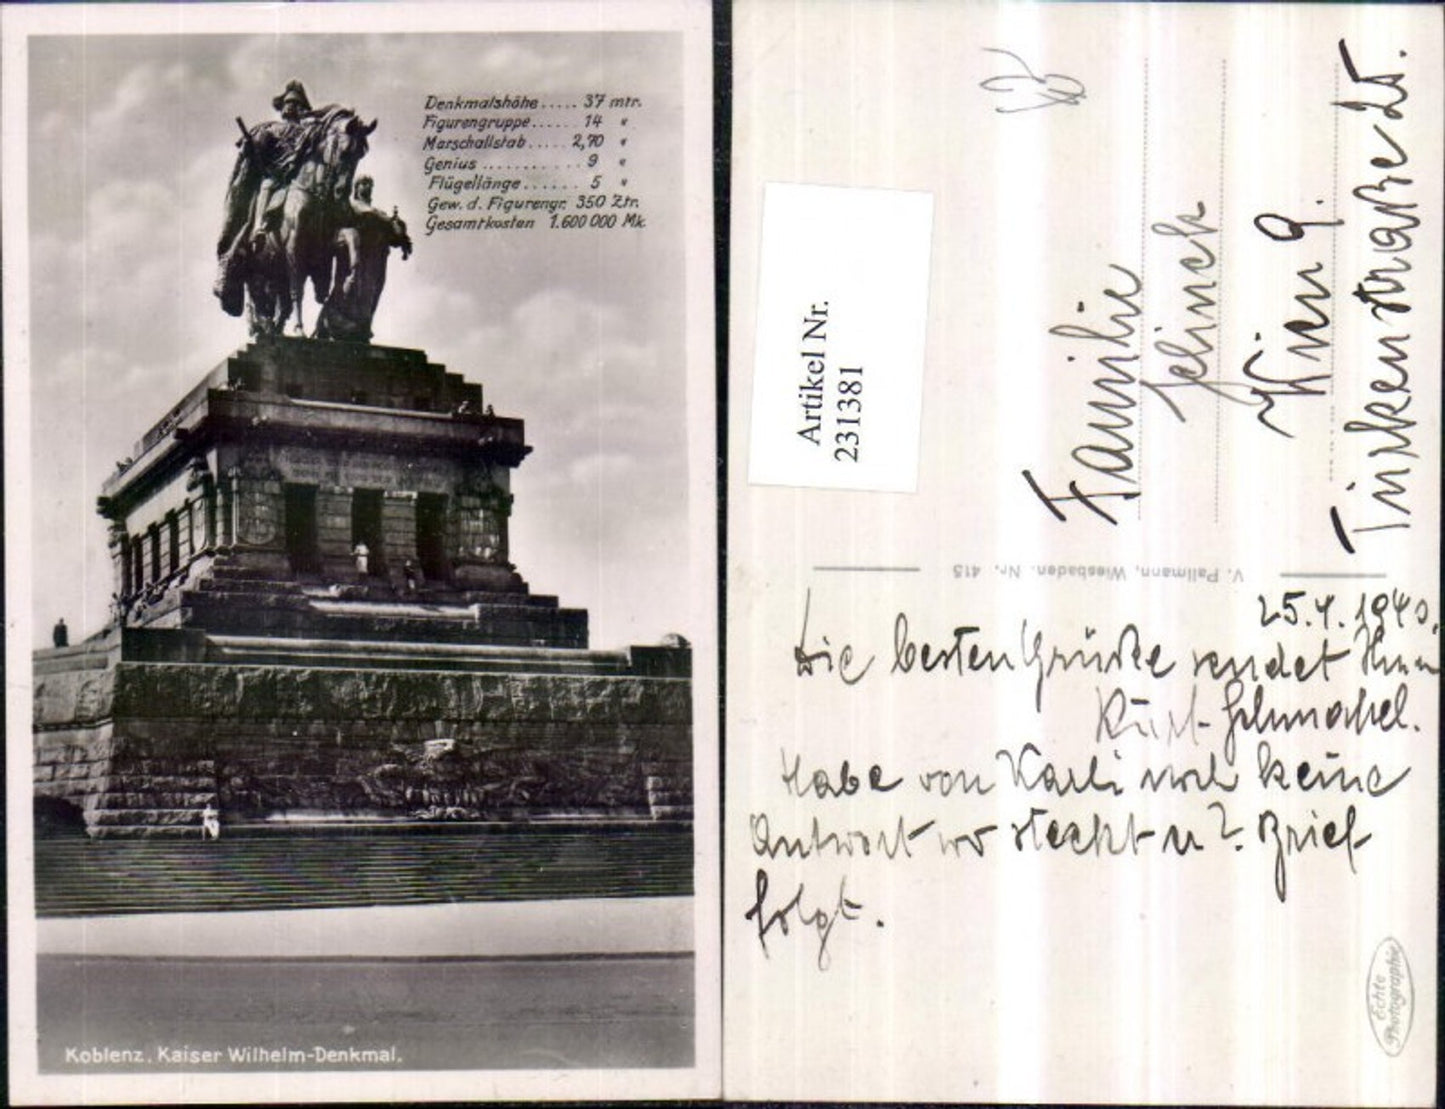 Denkmalshöhe ..... 37 mtr.
Figurengruppe ...... 14 "
Marschallstab ..... 2,70 "
Genius ........... 9 "
Flügellänge ...... 5 "
Gew. d. Figurengr. 350 Ztr.
Gesamtkosten 1.600 000 Mk.
Koblenz. Kaiser Wilhelm-Denkmal.
Artikel Nr.
231381
Familie
Jelinek
Wien 9.
Türkenstraße 25.
V. Pallmann, Wiesbaden. Nr. 415
25.4.1940.
Die besten Grüße sendet Ihnen
Kurt
Habe von Karli noch keine
Antwort wo steckt er? Brief
folgt.
Echte
Photographie